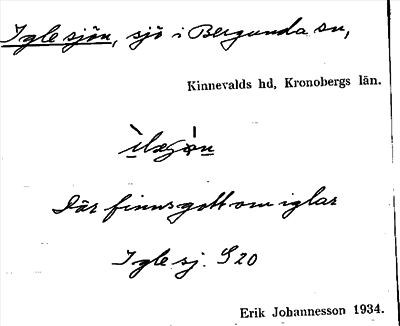 Iglesjön, sjö i Bergunda sn,
Kinnevalds hd, Kronobergs län.
Där finns gott om iglar
Iglesj. S 20
Erik Johannesson 1934.